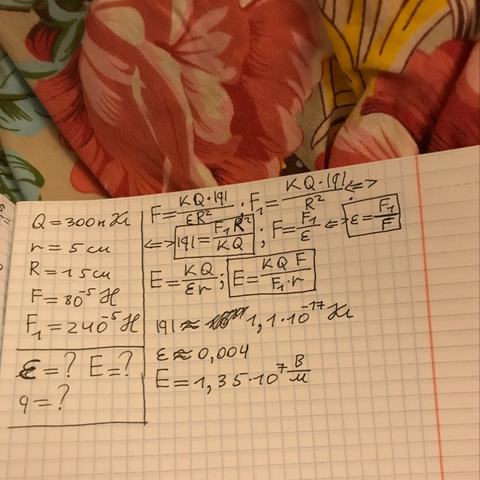 Q = 300 нКл
r = 5 см
R = 15 см
F = 80⁻⁵ Н
F₁ = 240⁻⁵ Н
ε = ? E = ?
q = ?
F = KQ·|q| / εR² ; F₁ = KQ·|q| / R² <=>
<=> |q| = F₁R² / KQ ; F = F₁ / ε <=> ε = F₁ / F
E = KQ / εr ; E = KQF / F₁·r
|q| ≈ 1,1·10⁻¹⁷ Кл
ε ≈ 0,004
E = 1,35·10⁷ В/м